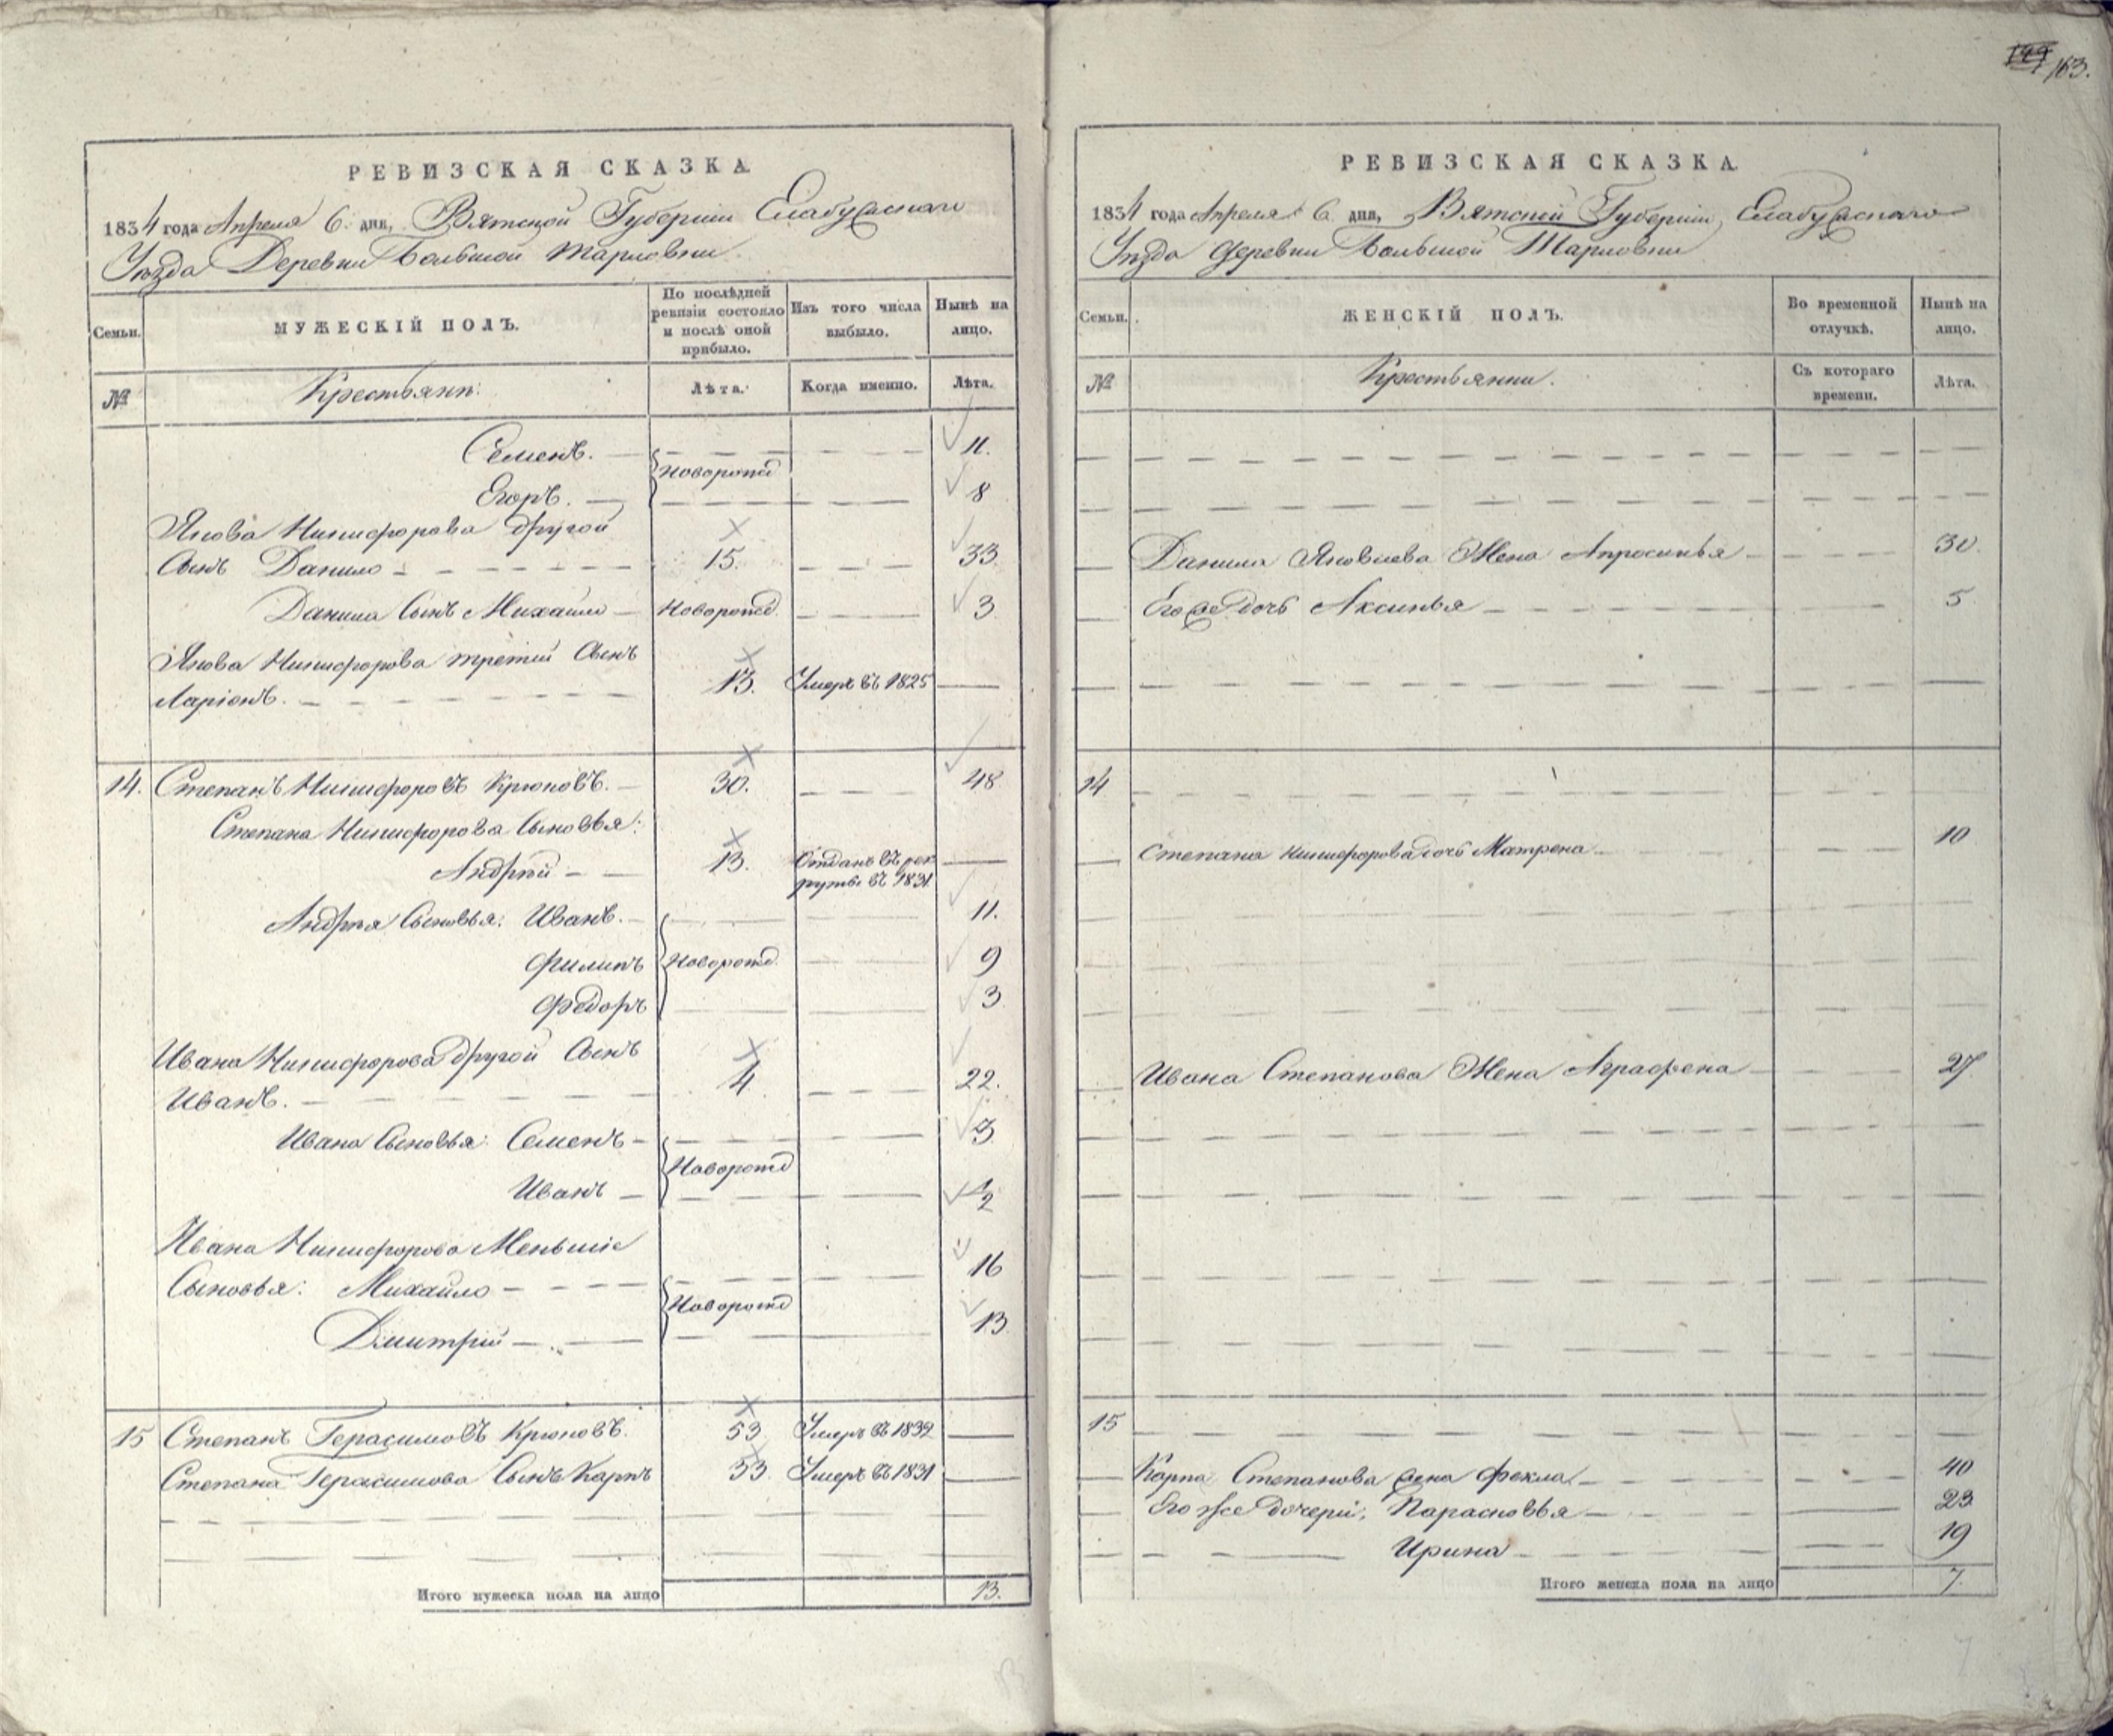 163.
РЕВИЗСКАЯ СКАЗКА
1834 года Апреля 6. дня, Вятской Губернии Елабужскаго
Уѣзда Деревни Большой Тарловки
Семьи.
МУЖЕСКІЙ ПОЛЪ.
По послѣдней ревизіи состояло и послѣ оной прибыло.
Изъ того числа выбыло.
Нынѣ на лицо.
№
Крестьяне:
Лѣта.
Когда именно.
Лѣта.
Семенъ. 11.
Новорожд
Егоръ. 8
Якова Никифорова другой
Сынъ Данило 15. 33
Данила Сынъ Михайло Новорожд. 3
Якова Никифорова третій Сынъ
Ларіонъ. 13. Умеръ въ 1825
14. Степанъ Никифоровъ Крюковъ. 30. 48
Степана Никифорова Сыновья:
Андрѣй 13. Отданъ въ рек
руты въ 1831
Андрѣя Сыновья: Иванъ. 11.
Филипъ Новорожд. 9
Федоръ 3
Ивана Никифорова другой Сынъ
Иванъ. 4 22.
Ивана Сыновья: Семенъ 3
Новорожд
Иванъ 1/2
Ивана Никифорова Меньшіе
Сыновья: Михайло 16
Новорожд
Дмитрій 13
15 Степанъ Герасимовъ Крюковъ. 53 Умеръ въ 1832
Степана Герасимова Сынъ Карпъ 33 Умеръ въ 1831
Итого мужеска пола на лицо 13.
РЕВИЗСКАЯ СКАЗКА
1834 года Апреля 6 дня, Вятской Губерніи, Елабужскаго
Уѣзда деревни Большой Тарловки
Семьи.
ЖЕНСКІЙ ПОЛЪ.
Во временной отлучкѣ.
Нынѣ на лицо.
№
Крестьянки.
Съ котораго времени.
Лѣта.
Данила Яковлева Жена Апросинья 30.
Его же дочь Аксинья 5
14
Степана Никифорова дочь Матрена 10
Ивана Степанова Жена Аграфена 27
15
Карпа Степанова жена Фекла 40
Его же дочери: Парасковья 23
Ирина 19
Итого женска пола на лицо 7.